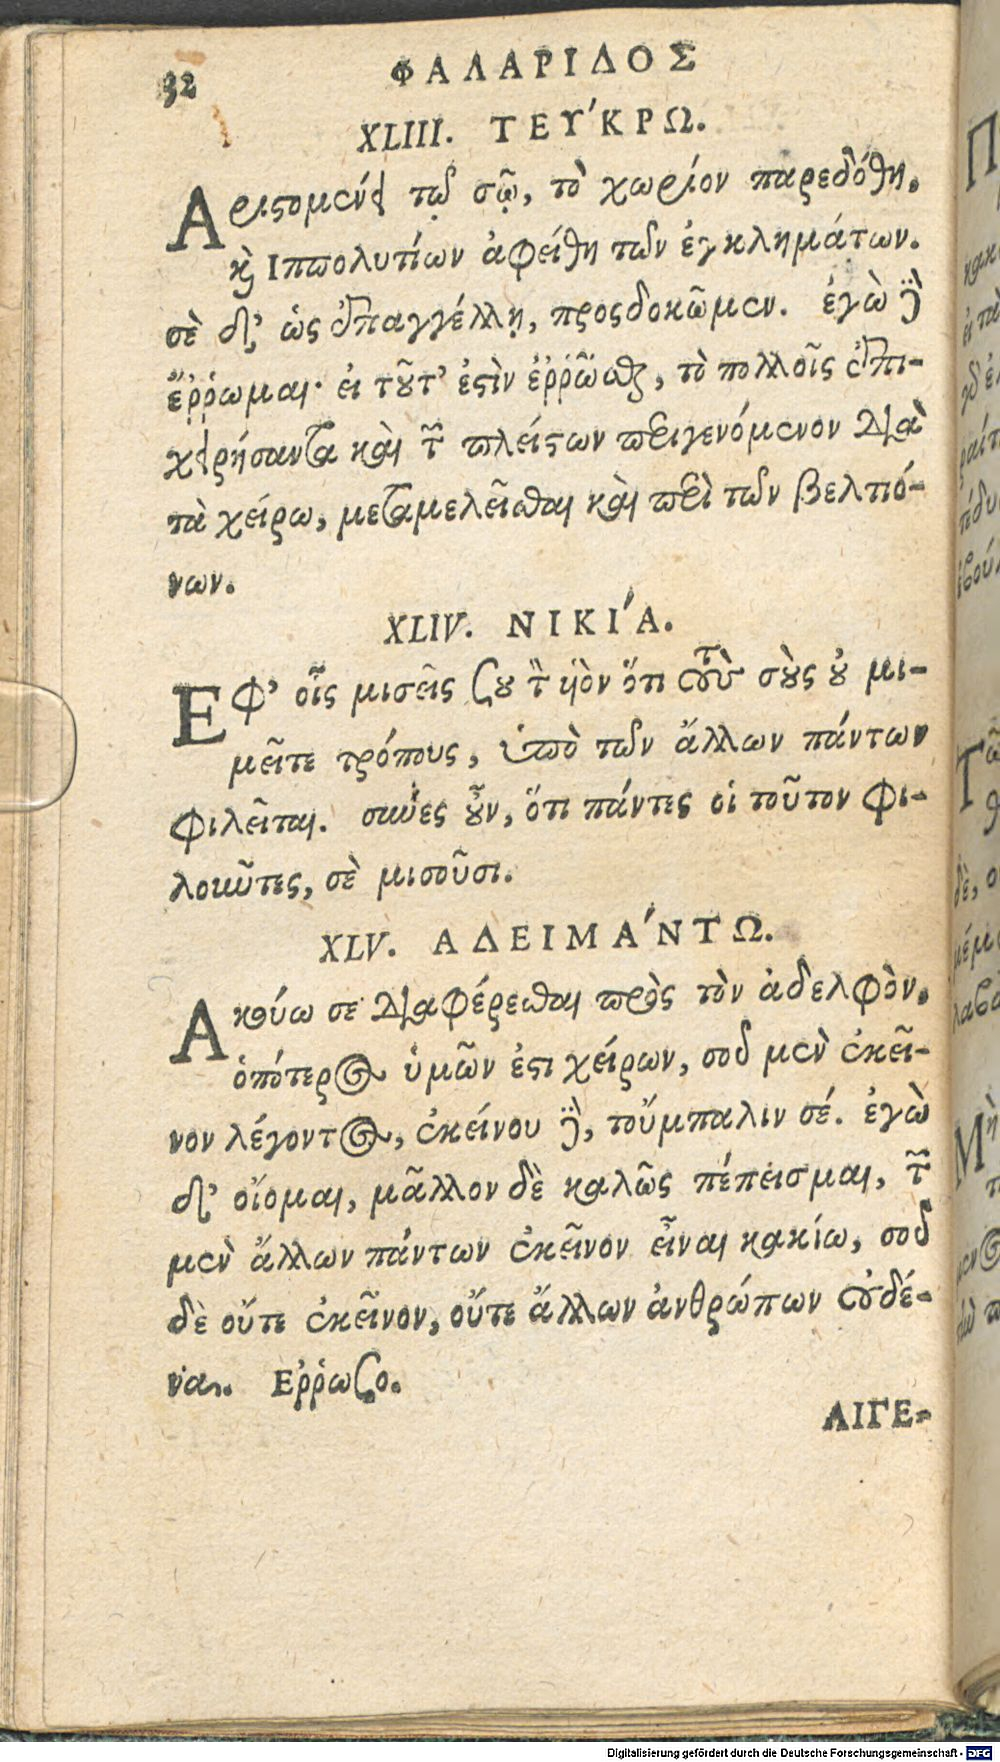 32
ΦΑΛΑΡΙΔΟΣ
XLIII. ΤΕΥ´ΚΡΩ.
Αριστομένει τῳ σῷ, τὸ χωρίον παρεδόθη.
καὶ Ιππολυτίων ἀφείθη των ἐγκλημάτων.
σὲ δ', ὡς ἐπαγγέλλῃ, προςδοκῶμεν. ἐγὼ δὲ
ἔῤῥωμαι· ἐι τοῦτ' ἐστὶν ἐῤῥῶσθαι, τὸ πολλοῖς ἐπι-
χειρήσαντα καὶ τῶν πλείστων περιγενόμενον διὰ
τὰ χείρω, μεταμελεῖσθαι καὶ περὶ των βελτιό-
νων.
XLIV. ΝΙΚΙ´Α.
ΕΦ' οἷς μισεῖς σου τὸν ὑὸν ὅτι τοὺς σοὺς οὐ μι-
μεῖται τρόπους, ὑπὸ των ἄλλων πάντων
φιλεῖται. σκόπει οὖν, ὅτι πάντες οἱ τοῦτον φι-
λοῦντες, σὲ μισοῦσι.
XLV. ΑΔΕΙΜΑ´ΝΤΩ.
Ακούω σε διαφέρεσθαι πρὸς τὸν ἀδελφὸν.
ὁπότερος ὑμῶν ἐστι χείρων, σοῦ μὲν ἐκεῖ-
νον λέγοντος, ἐκείνου δὲ, τοὔμπαλιν σέ. ἐγὼ
δ' οἴομαι, μᾶλλον δὲ καλῶς πέπεισμαι, τῶν
μὲν ἄλλων πάντων ἐκεῖνον εἶναι κακίω, σοῦ
δὲ οὔτε ἐκεῖνον, οὔτε ἄλλων ἀνθρώπων οὐδέ-
να. Εῤῥωσο.
ΑΙΓΕ-
Digitalisierung gefördert durch die Deutsche Forschungsgemeinschaft - DFG